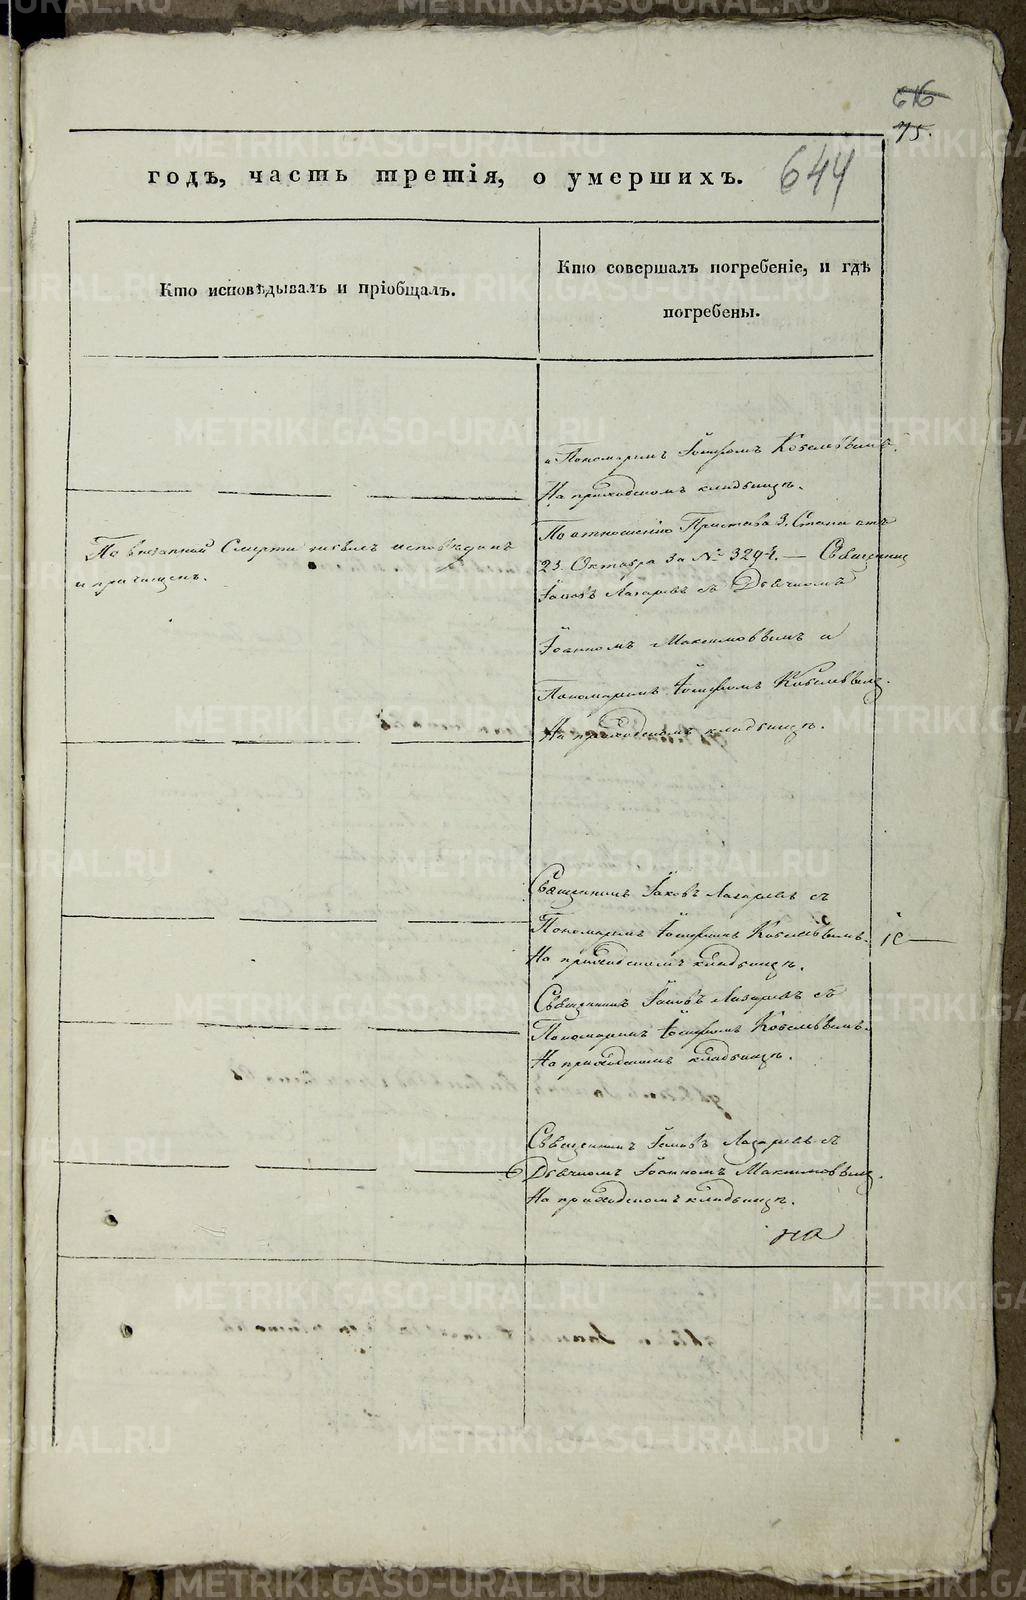 616
75.
годъ, часть третія, о умершихъ. 644
Кто исповѣдывалъ и пріобщалъ.
Кто совершалъ погребеніе, и гдѣ
погребены.
и Пономаремъ Іосифомъ
На приходскомъ кладбищѣ.
По внезапной Смерти небылъ исповѣданъ
и причащенъ.
По отношенію Пристава 3. Стана отъ
23. Октября за № 3294. — Священникъ
Іаковъ Лазаревъ съ Дьячкомъ
Іоанномъ Максимовымъ и
Пономаремъ Іосифомъ
На приходскомъ кладбищѣ.
Священникъ Іаковъ Лазаревъ съ
Пономаремъ Іосифомъ
На приходскомъ кладбищѣ.
Священникъ Іаковъ Лазаревъ съ
Пономаремъ Іосифомъ
На приходскомъ кладбищѣ.
Священникъ Іаковъ Лазаревъ съ
Дьячкомъ Іоанномъ Максимовымъ
На приходскомъ кладбищѣ.
METRIKI.GASO-URAL.RU